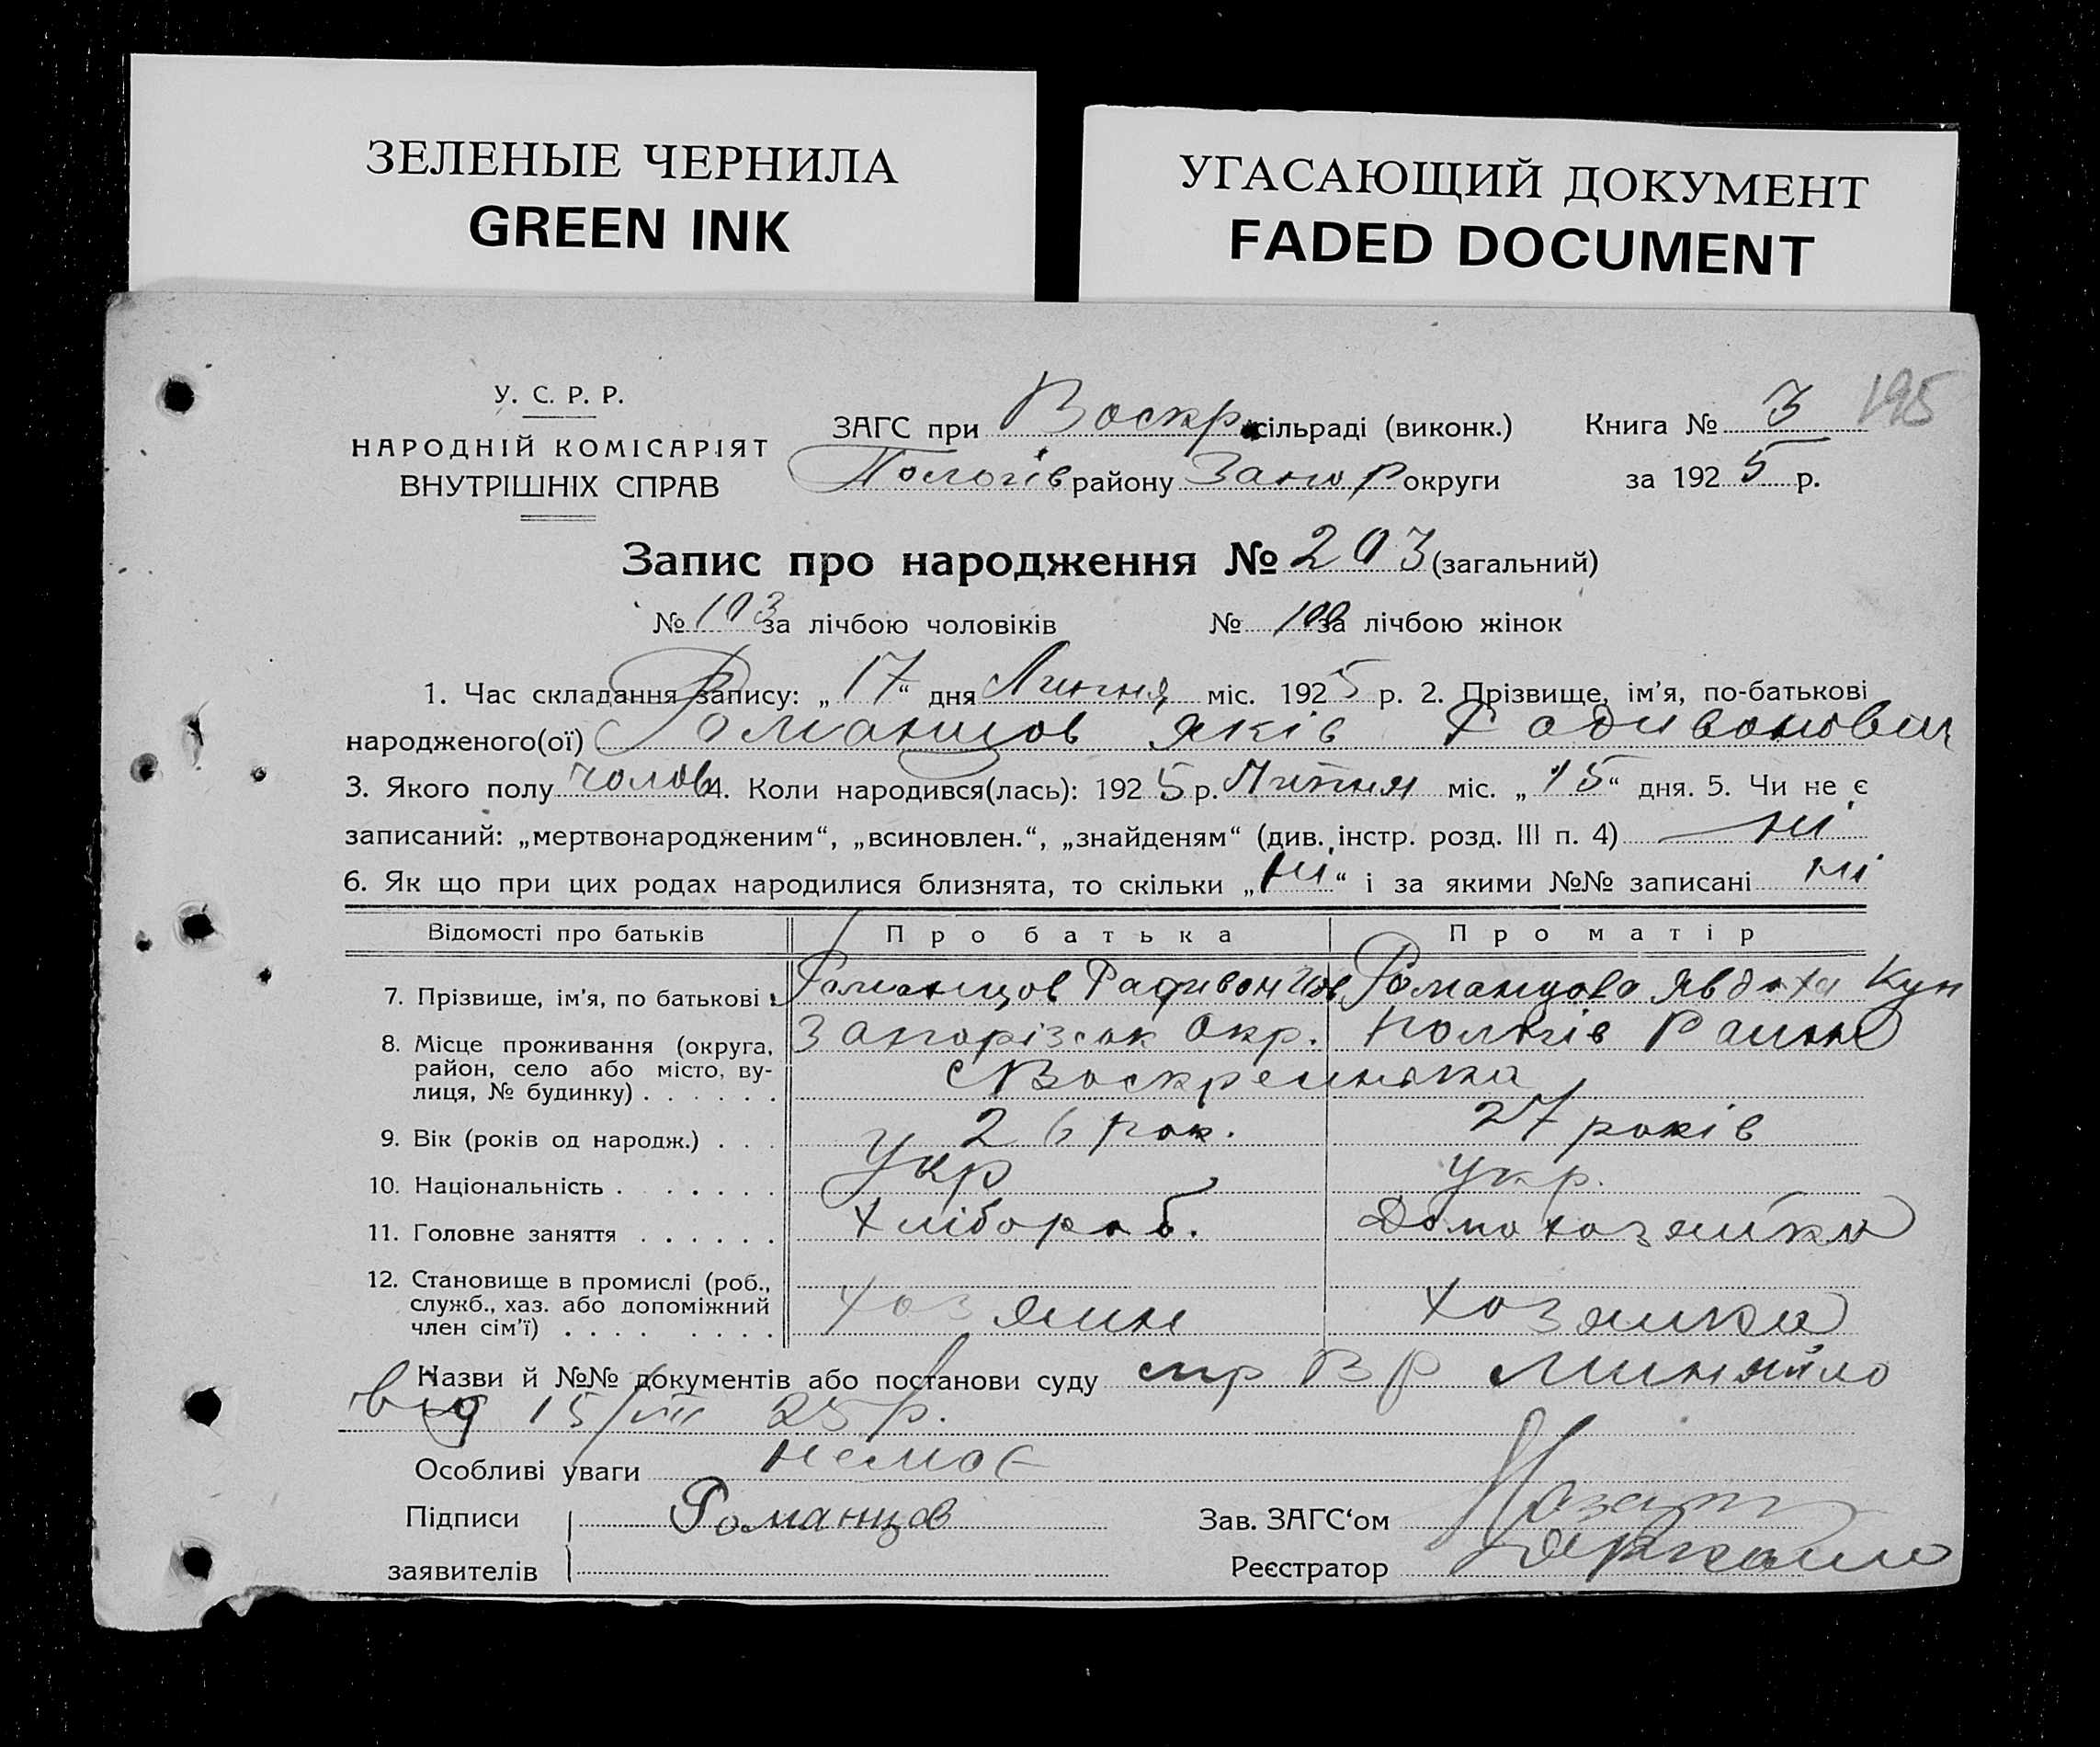 ЗЕЛЕНЫЕ ЧЕРНИЛА
GREEN INK
УГАСАЮЩИЙ ДОКУМЕНТ
FADED DOCUMENT
У. С. Р. Р.
НАРОДНІЙ КОМІСАРІЯТ
ВНУТРІШНІХ СПРАВ
ЗАГС при Воскр. сільраді (виконк.)
Пологів району Запор округи
Книга № 3 195
за 1925 р.
Запис про народження № 203 (загальний)
№ 103 за лічбою чоловіків № 100 за лічбою жінок
1. Час складання запису: „17“ дня Липня міс. 1925 р. 2. Прізвище, ім'я, по-батькові
народженого(ої) Романцов Яків Радивонович
3. Якого полу чолов. 4. Коли народився(лась): 1925 р. Липня міс. „15“ дня. 5. Чи не є
записаний: „мертвонародженим“, „всиновлен.“, „знайденям“ (див. інстр. розд. III п. 4) ні
6. Як що при цих родах народилися близнята, то скільки „ні“ і за якими №№ записані ні
Відомості про батьків Про батька Про матір
7. Прізвище, ім'я, по батькові Романцов Радивон Романцова Явдоха Кун
8. Місце проживання (округа, район, село або місто, вулиця, № будинку) Запорізськ Окр. Пологів Району
с Воскресинка
9. Вік (років од народж.) 26 рок. 27 років
10. Національність укр укр.
11. Головне заняття Хлібороб. Домохозяйка
12. Становище в промислі (роб., служб., хаз. або допоміжний член сім'ї) хозяин хозяйка
Назви й №№ документів або постанови суду Миняйло
від 15/VII 25 р.
Особливі уваги немає
Підписи заявителів Романцов
Зав. ЗАГС'ом
Реєстратор